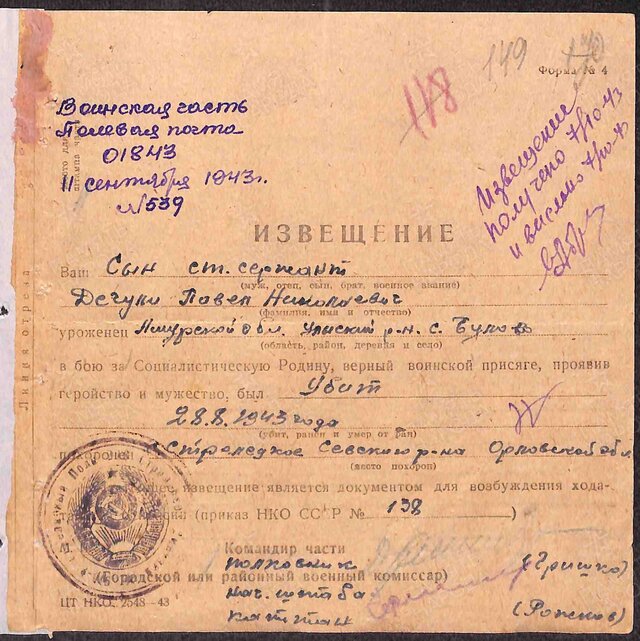 118
149
Форма № 4
Воинская часть
Полевая почта
01843
11 сентября 1943г.
№539
Извещение
получено 7/10 43
и выслано 7/10 43
ИЗВЕЩЕНИЕ
Ваш Сын ст. сержант
(муж, отец, сын, брат, военное звание)
Дегули Павел Николаевич
(фамилия, имя и отчество)
уроженец Амурской обл. р.н. с.
(область, район, деревня и село)
в бою за Социалистическую Родину, верный воинской присяге, проявив
геройство и мужество, был Убит
28.8.1943 года
(убит, ранен и умер от ран)
похоронен Стрелецкое Севского р-на Орловской обл
(место похорон)
извещение является документом для возбуждения хода-
(приказ НКО СССР № 138)
Командир части
полковник (Гришко)
(Городской или районный военный комиссар)
нач. штаба
капитан
ЦТ НКО. 2548—43
Линия отреза